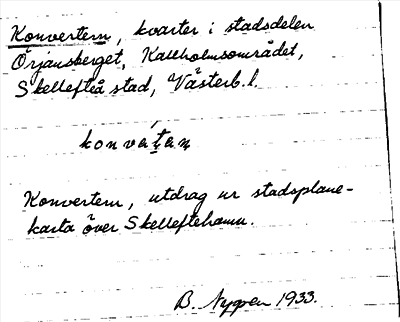 Konvertern, kvarter i stadsdelen
Örjansberget, Kallholmsområdet,
Skellefteå stad, Västerb. l.
konvátan
Konvertern, utdrag ur stadsplane-
karta över Skelleftehamn.
B. Nygren 1933.